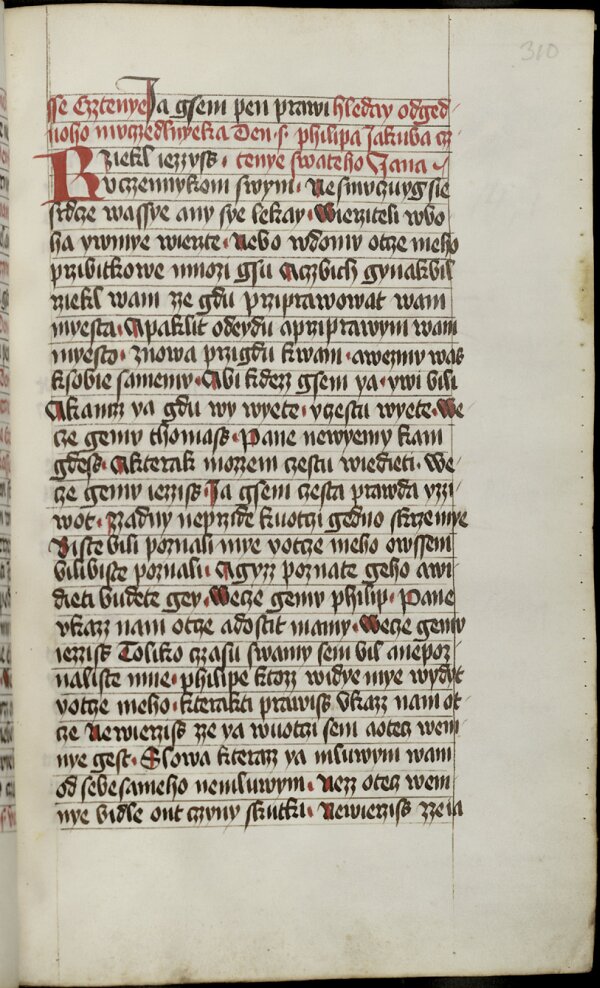 310
sse Cztenye Ja gsem pen prawi hleday odged
noho muczedlnyka Den .s. philipa Jakuba cz
Rziekl iezzyss · tenye swateho Jana
vczennykom swym · Nesmuczuyg sie
srdcze wassye any sye lekay · Wierziteli wbo
ha ywmye wierte · Nebo wdomu otcze meho
przibitkowe mnozi gsu Aczbich gynak bil
rziekl wam ze gdu prziprawowat wam
myesta · Apaklit odeydu aprziprawym wam
myesto · znowa przigdu kwam · awezmu was
ksobie samemu · Abi kdezz gsem ya · ywi bili
Akamz ya gdu wy wyete · yczestu wyete · We
cze gemu thomass · Pane newyemy kam
gdess · Akterak mozzem czestu wiedieti · We
cze gemu iezziss · Ja gsem czesta prawda yzi
wot · Zzadny neprzide kuotczi gedno skrze mye
Biste bili poznali mye yotcze meho owssem
bili biste poznali · Agyzz poznate geho awi
dieti budete gey · Wecze gemu philip · Pane
vkazz nam otcze adostit mamy · Wecze gemu
iezziss Toliko czasu swamy sem bil anepoz
naliste mne · philipe ktozz widye mye wydyt
yotcze meho · kterakti prawiss Vkazz nam ot
cze Newierziss ze ya wuotczi sem aotecz wem
nye gest · Slowa kterazz ya mluwym wam
od sebe sameho nemluwym · Nezz otecz wem
nye bidle ont czyny skutki · Newierziss zze ia